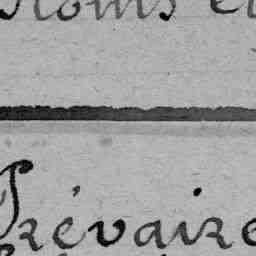 Noms et
Prévaire